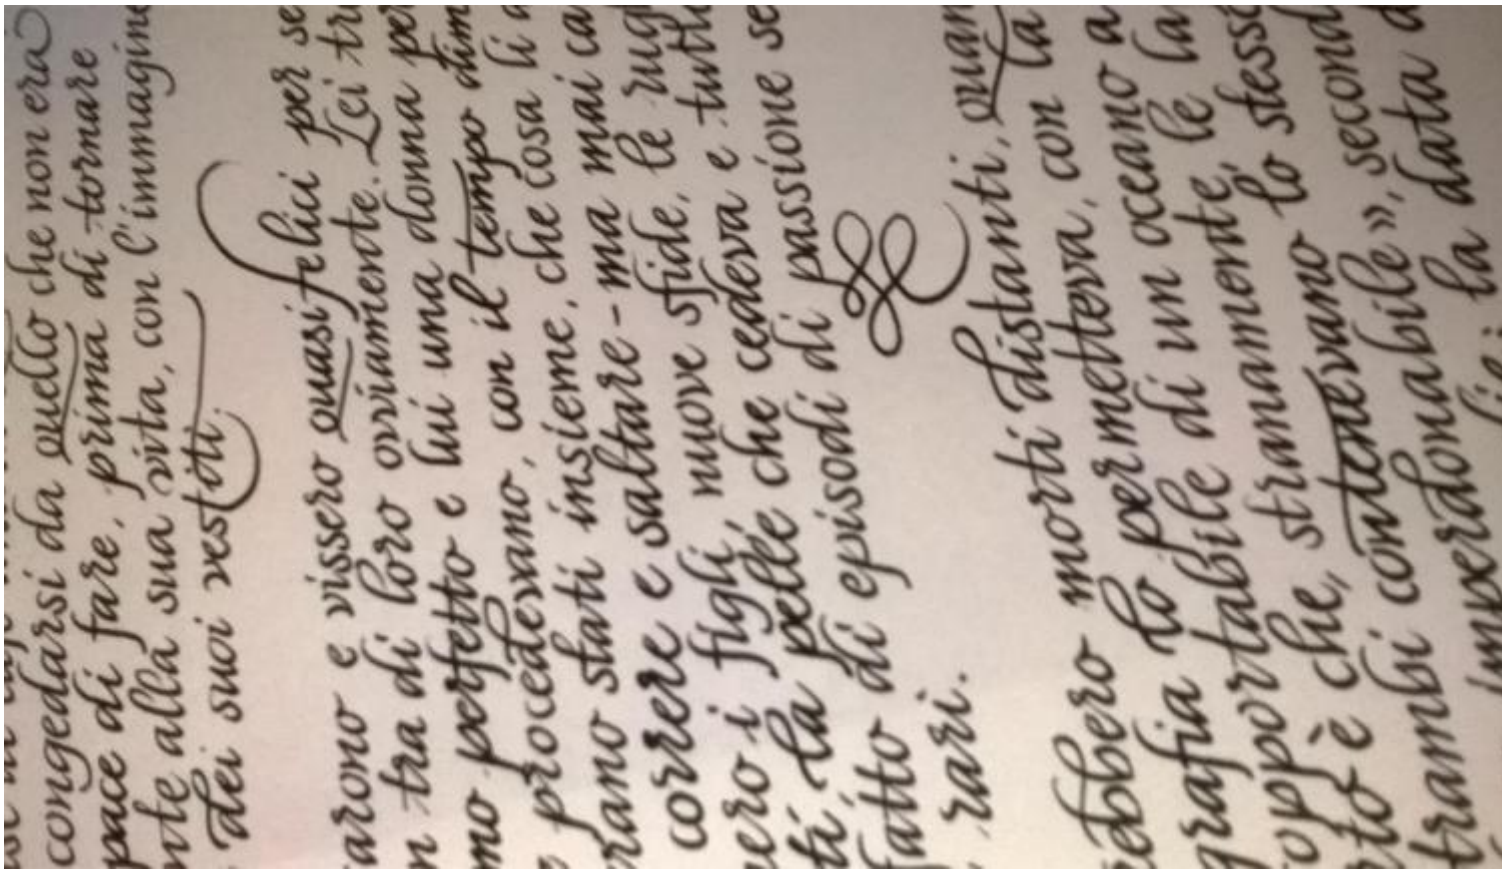 congedarsi da quello che non era
pace di fare, prima di tornare
nte alla sua vita, con l'immagine
dei suoi vestiti.
arono e vissero quasi felici per se
n tra di loro ovviamente. Lei tr
mo perfetto e lui una donna per
procedevano, con il tempo dim
rano stati insieme, che cosa li a
correre e saltare - ma mai ca
ero i figli, nuove sfide, le rug
ti, la pelle che cedeva e tutto
fatto di episodi di passione se
rari.
ebbero morti distanti, quan
grafia lo permetteva, con la
opportabile di un oceano a
oppo è che, stranamente, le la
contenevano lo stess
trambi condonabile», second
imperdonabile: la data d